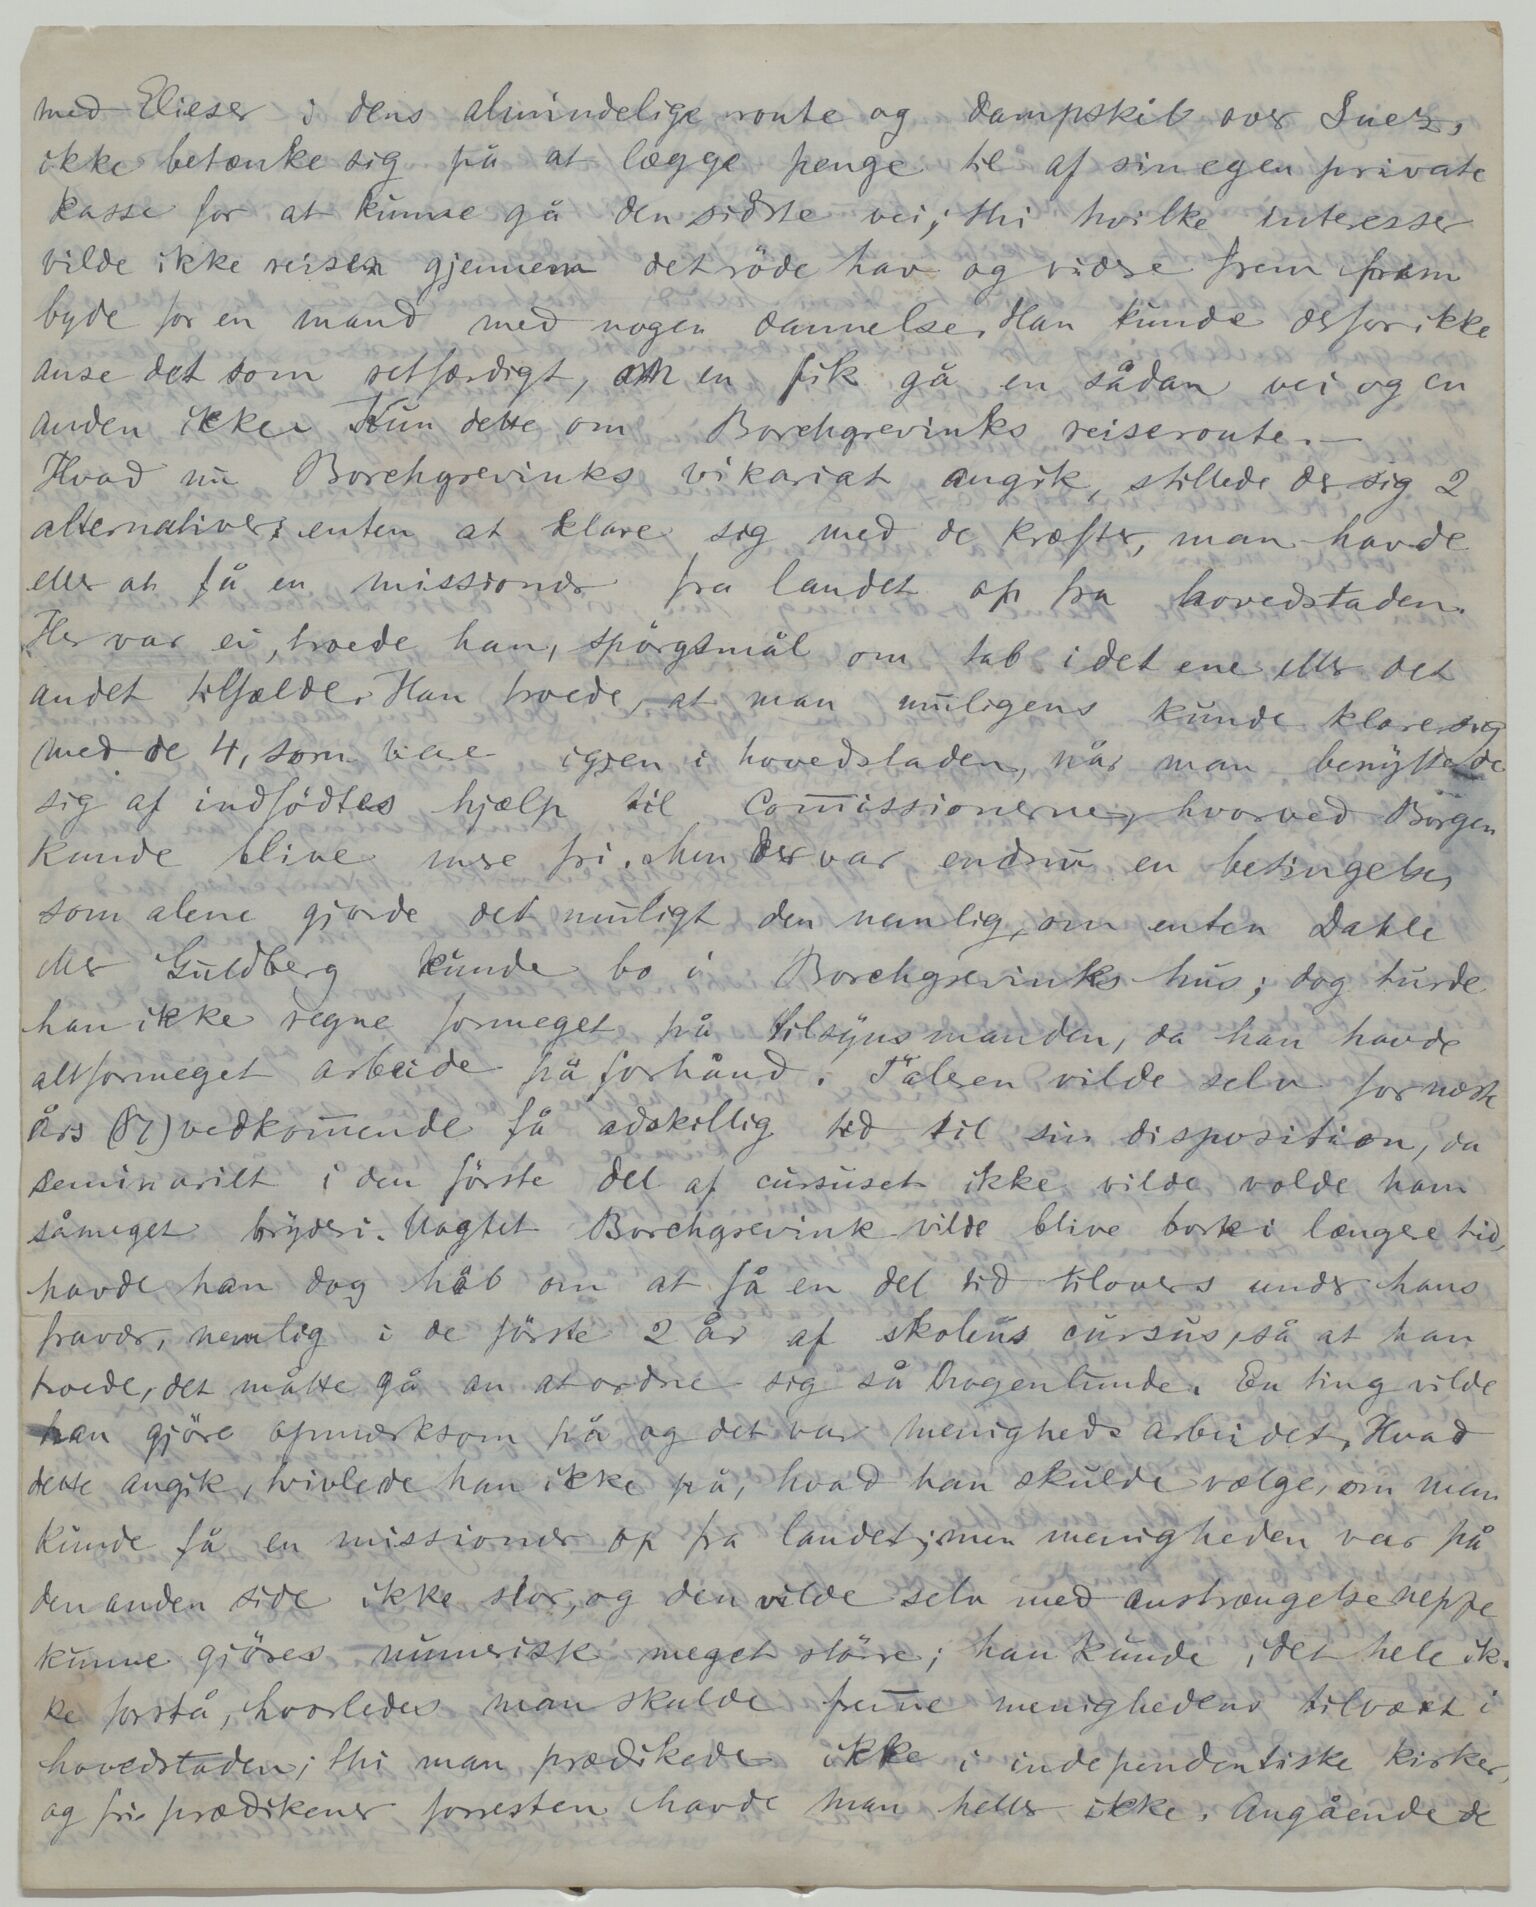 med Elieser i dens almindelige route og dampskib over Suez,
ikke betænke sig på at lægge penge til af sin egen private
kasse for at kunne gå den sidste vei; thi hvilke interesser
vilde ikke reisen gjennem det röde hav og videre frem frem
byde for en mand med nogen dannelse. Han kunde derfor ikke
anse det som retfærdigt, om en fik gå en sådan vei og en
anden ikke. Kun dette om Borchgrevinks reiseroute. —
Hvad nu Borchgrevinks vikariat angik, stillede der sig 2
alternativer: enten at klare sig med de kræfter, man havde
eller at få en missionær fra landet op fra hovedstaden.
Her var ei, troede han, spörgsmål om tab i det ene eller det
andet tilfælde. Han troede, at man muligens kunde klare sig
med de 4, som vare igjen i hovedstaden, når man benyttede
sig af indfödtes hjælp til Com̅issionerne, hvorved Borgen
kunde blive mere fri. Men der var endnu en betingelse,
som alene gjorde det muligt den nemlig, om enten Dahle
eller Guldberg kunde bo i Borchgrevinks hus; dog turde
han ikke regne formeget på tilsynsmanden, da han havde
altformeget arbeide på forhånd. Taleren vilde selv for næste
års (87) vedkom̅ende få adskillig tid til sin disposition, da
seminariet i den förste del af cursuset ikke vilde volde ham
såmeget bryderi. Uagtet Borchgrevink vilde blive bort i længere tid,
havde han dog håb om at få en del tid tilovers under hans
fravær, nemlig i de förste 2 år af skolens cursus, så at han
troede, det måtte gå an at ordne sig så nogenlunde. En ting vilde
han gjöre opmærksom på og det var menighedsarbeidet. Hvad
dette angik, tvivlede han ikke på, hvad han skulde vælge, om man
kunde få en missionær op fra landet; men menigheden var på
den anden side ikke stor, og den vilde selv med anstrængelse neppe
kunne gjöres numerisk meget större; han kunde i det hele ik-
ke forstå, hvorledes man skulde frem̅e menighedens tilvæxt i
hovedstaden; thi man prædikede ikke i independentiske kirker,
og fri prædikener forresten havde man heller ikke. Angående de